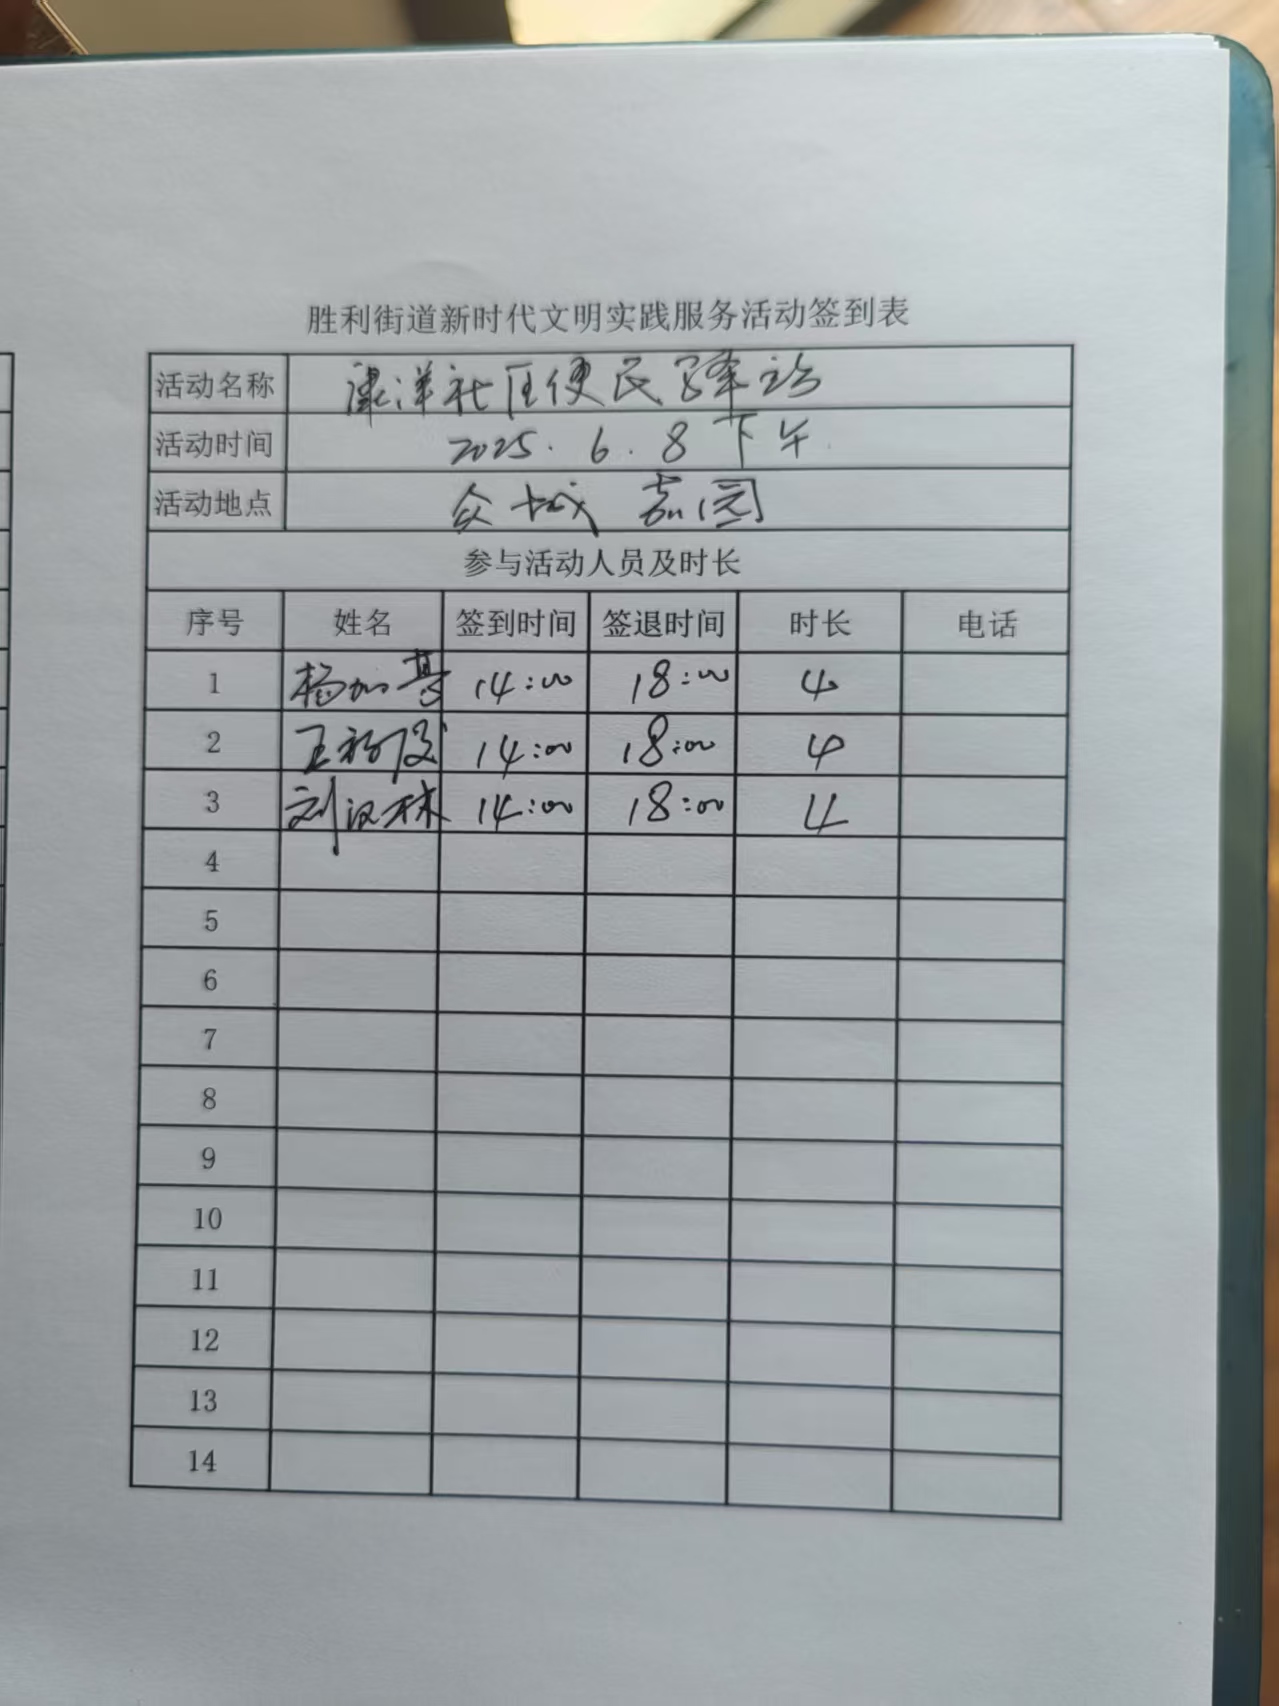 胜利街道新时代文明实践服务活动签到表
活动名称 康洋社区便民驿站
活动时间 2025.6.8 下午
活动地点 众城嘉园
参与活动人员及时长
序号 姓名 签到时间 签退时间 时长 电话
1 杨加 14:00 18:00 4
2 王 14:00 18:00 4
3 刘汉林 14:00 18:00 4
4
5
6
7
8
9
10
11
12
13
14